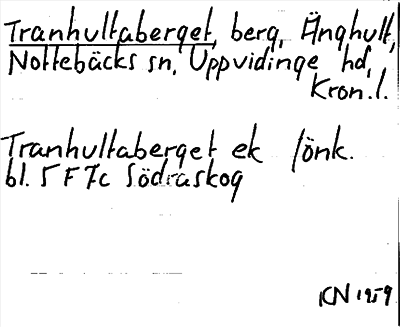 Tranhultaberget, berg, Änghult,
Nottebäcks sn, Uppvidinge hd,
Kron.l.
Tranhultaberget ek lönk.
bl. 5 F 7c Södraskog
KN 1959